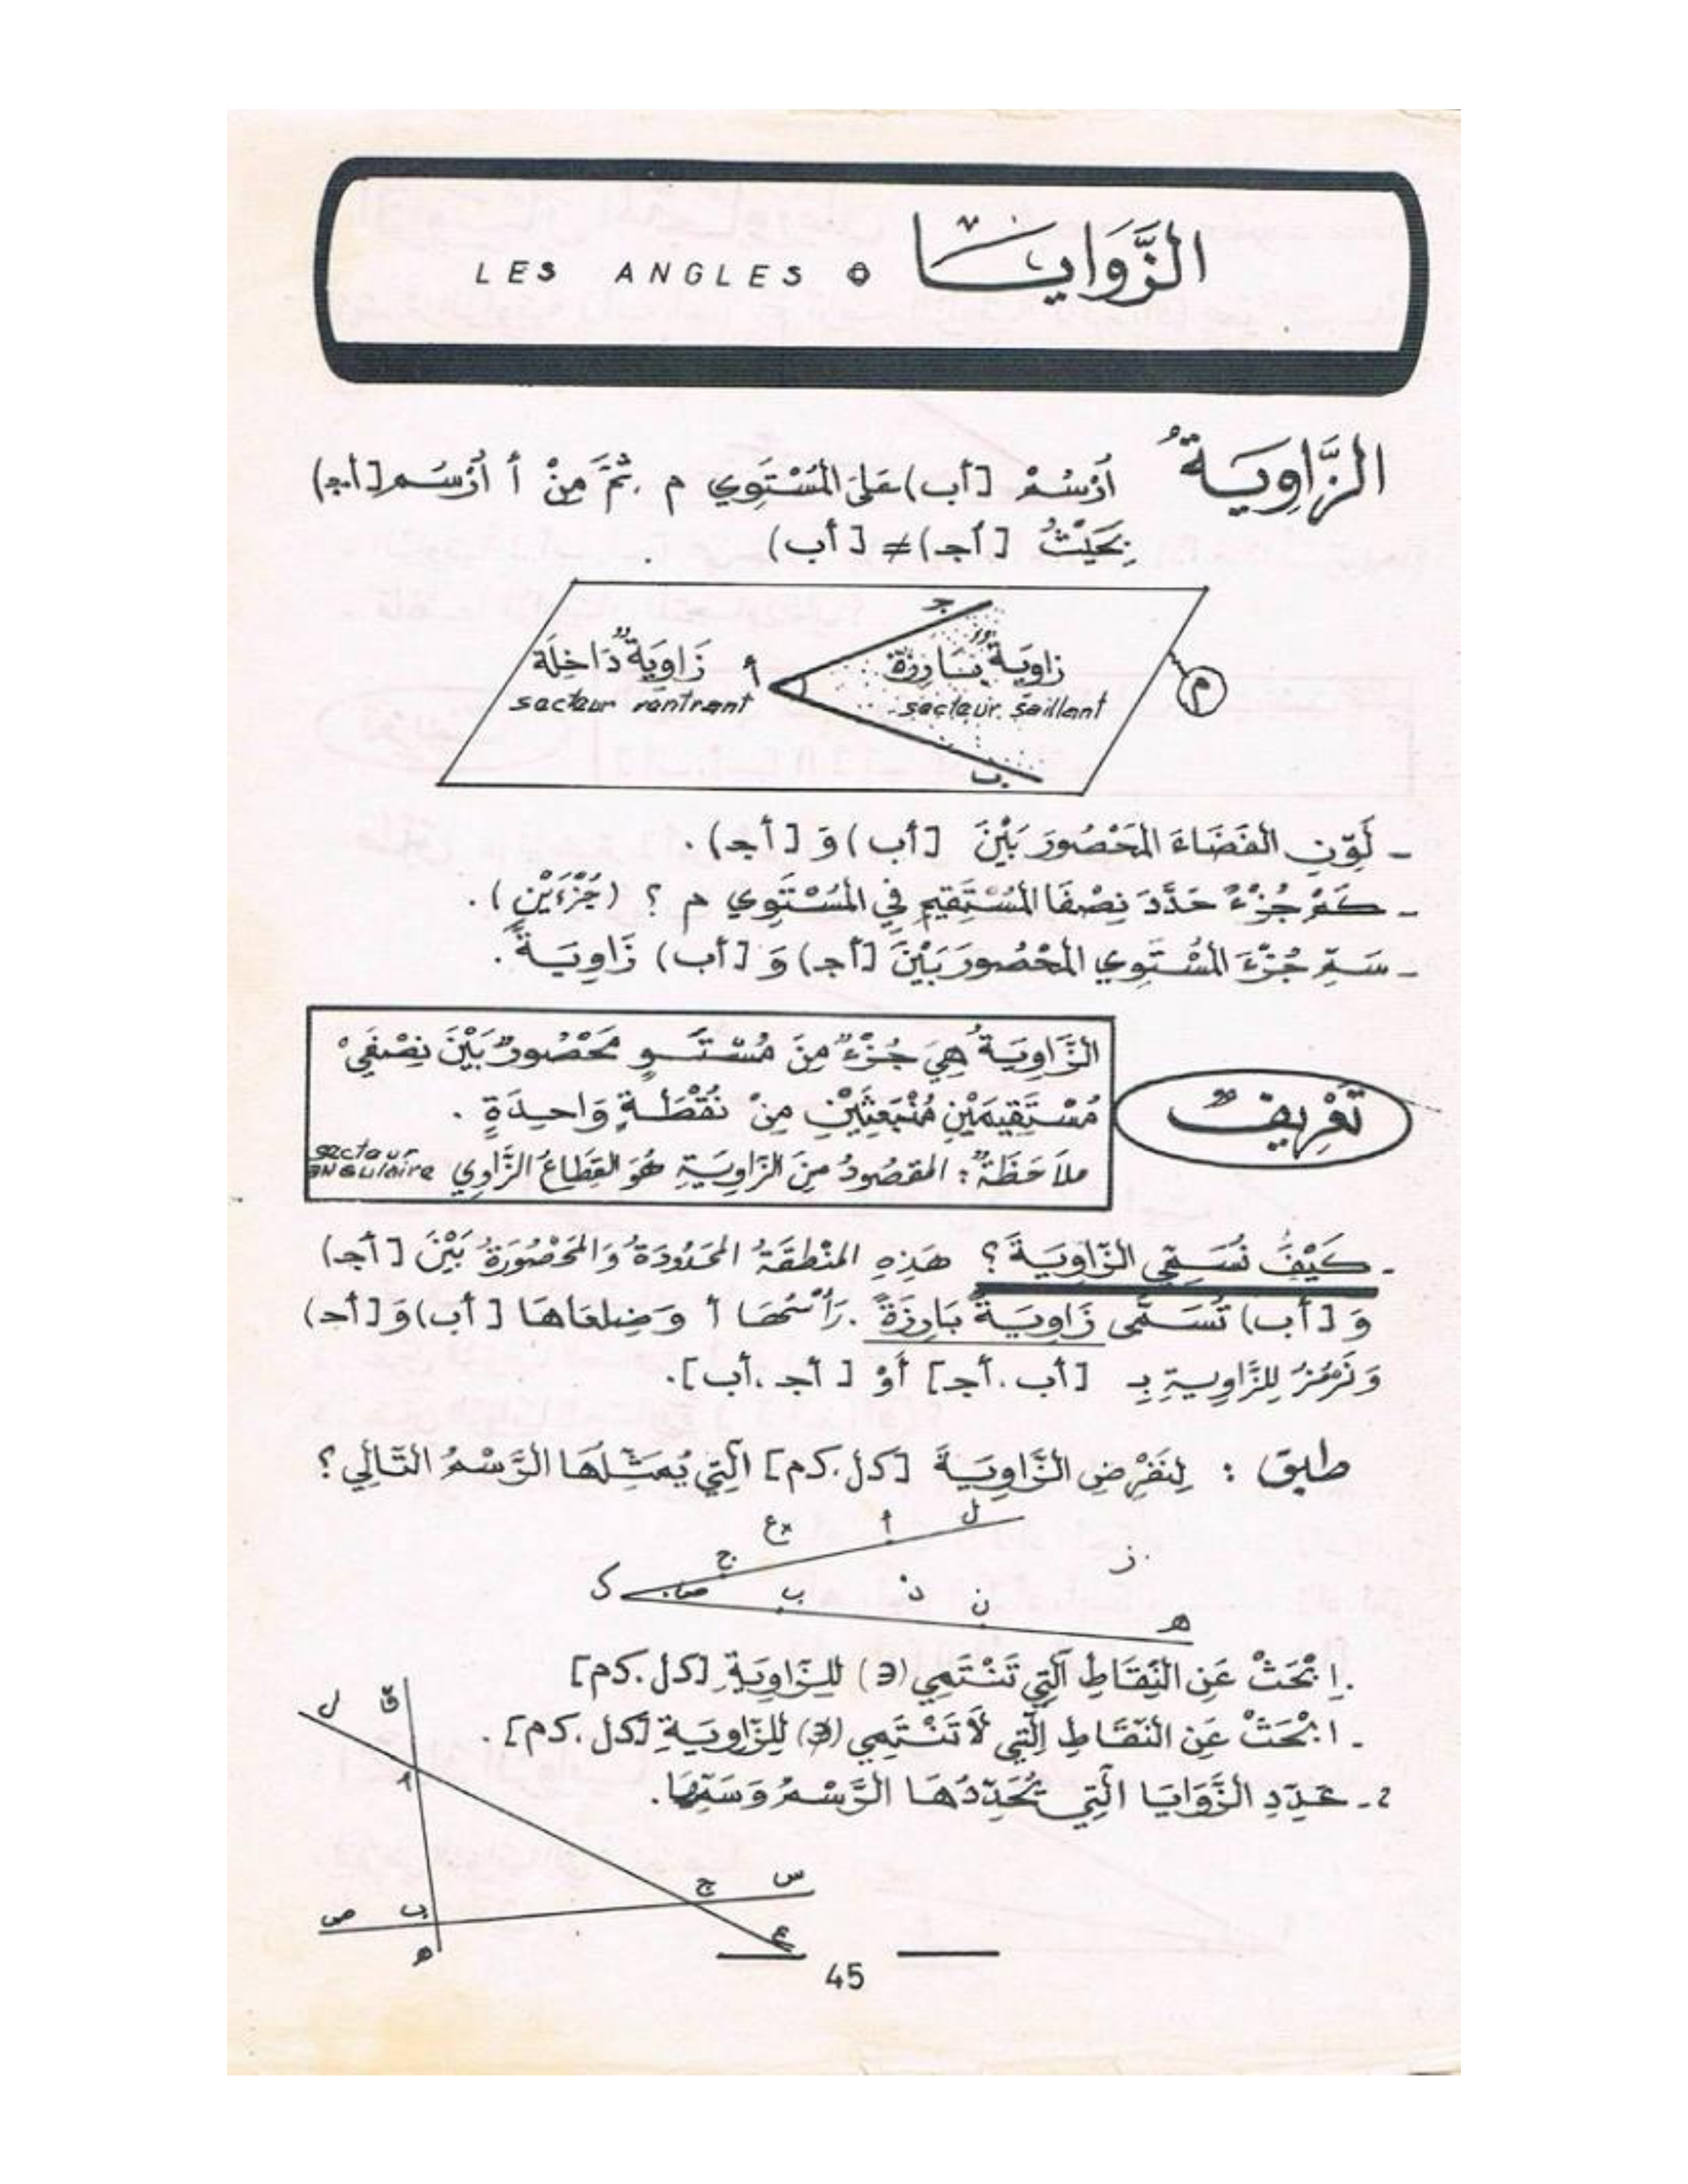 الزَّوَايَا LES ANGLES
الزَّاوِيَةُ أُرْسُمْ [أب) عَلَى المُسْتَوِي م . ثُمَّ مِنْ أ أُرْسُم [أجـ)
بِحَيْثُ [أجـ) ≠ [أب)
جـ
زَاوِيَةٌ دَاخِلَة أ زاوِيَةٌ بَارِزَةٌ م
secteur rentrant secteur saillant
ب
- لَوِّنِ الفَضَاءَ المَحْصُورَ بَيْنَ [أب) وَ [أجـ) .
- كَمْ جُزْءً حَدَّدَ نِصْفَا المُسْتَقِيمِ فِي المُسْتَوِي م ؟ (جُزْءَيْنِ) .
- سَمِّ جُزْءَ المُسْتَوِي المَحْصُورَ بَيْنَ [أجـ) وَ [أب) زَاوِيَةً .
الزَّاوِيَةُ هِيَ جُزْءٌ مِنَ مُسْتَــوٍ مَحْصُورٌ بَيْنَ نِصْفَيْ
تَعْرِيفٌ
مُسْتَقِيمَيْنِ مُنْبَعِثَيْنِ مِنْ نُقْطَةٍ وَاحِدَةٍ .
ملاَحَظَةٌ : المَقصُودُ مِنَ الزَّاوِيَةِ هُوَ القِطَاعُ الزَّاوِي secteur angulaire
- كَيْفَ نُسَمِّي الزَّاوِيَةَ ؟ هَذِهِ المَنْطِقَةُ المَحْدُودَةُ وَالمَحْصُورَةُ بَيْنَ [أجـ)
وَ [أب) تُسَمَّى زَاوِيَةً بَارِزَةً . رَأْسُهَا أ وَضِلعَاهَا [أب) وَ [أجـ)
وَنَرْمُزُ لِلزَّاوِيةِ بِـ [أب . أجـ] أَوْ [أجـ . أب] .
طبق : لِنَفْرِضِ الزَّاوِيَةَ [كل . كم] الَّتِي يُمَثِّلُهَا الرَّسْمُ التَّالِي ؟
×ع أ ل
ج ز
ك ص ب د ن
هـ
.اِبْحَثْ عَنِ النِّقَاطِ الَّتِي تَنْتَمِي (∋) لِلزَّاوِيَةِ [كل . كم]
. ابْحَثْ عَنِ النِّقَاطِ الَّتِي لاَ تَنْتَمِي (∌) لِلزَّاوِيَةِ [كل . كم] .
2 - عَدِّدِ الزَّوَايَا الَّتِي يُحَدِّدُهَا الرَّسْمُ وَسَمِّهَا.
ل ق
أ
ج س
ص ب
هـ ع
45